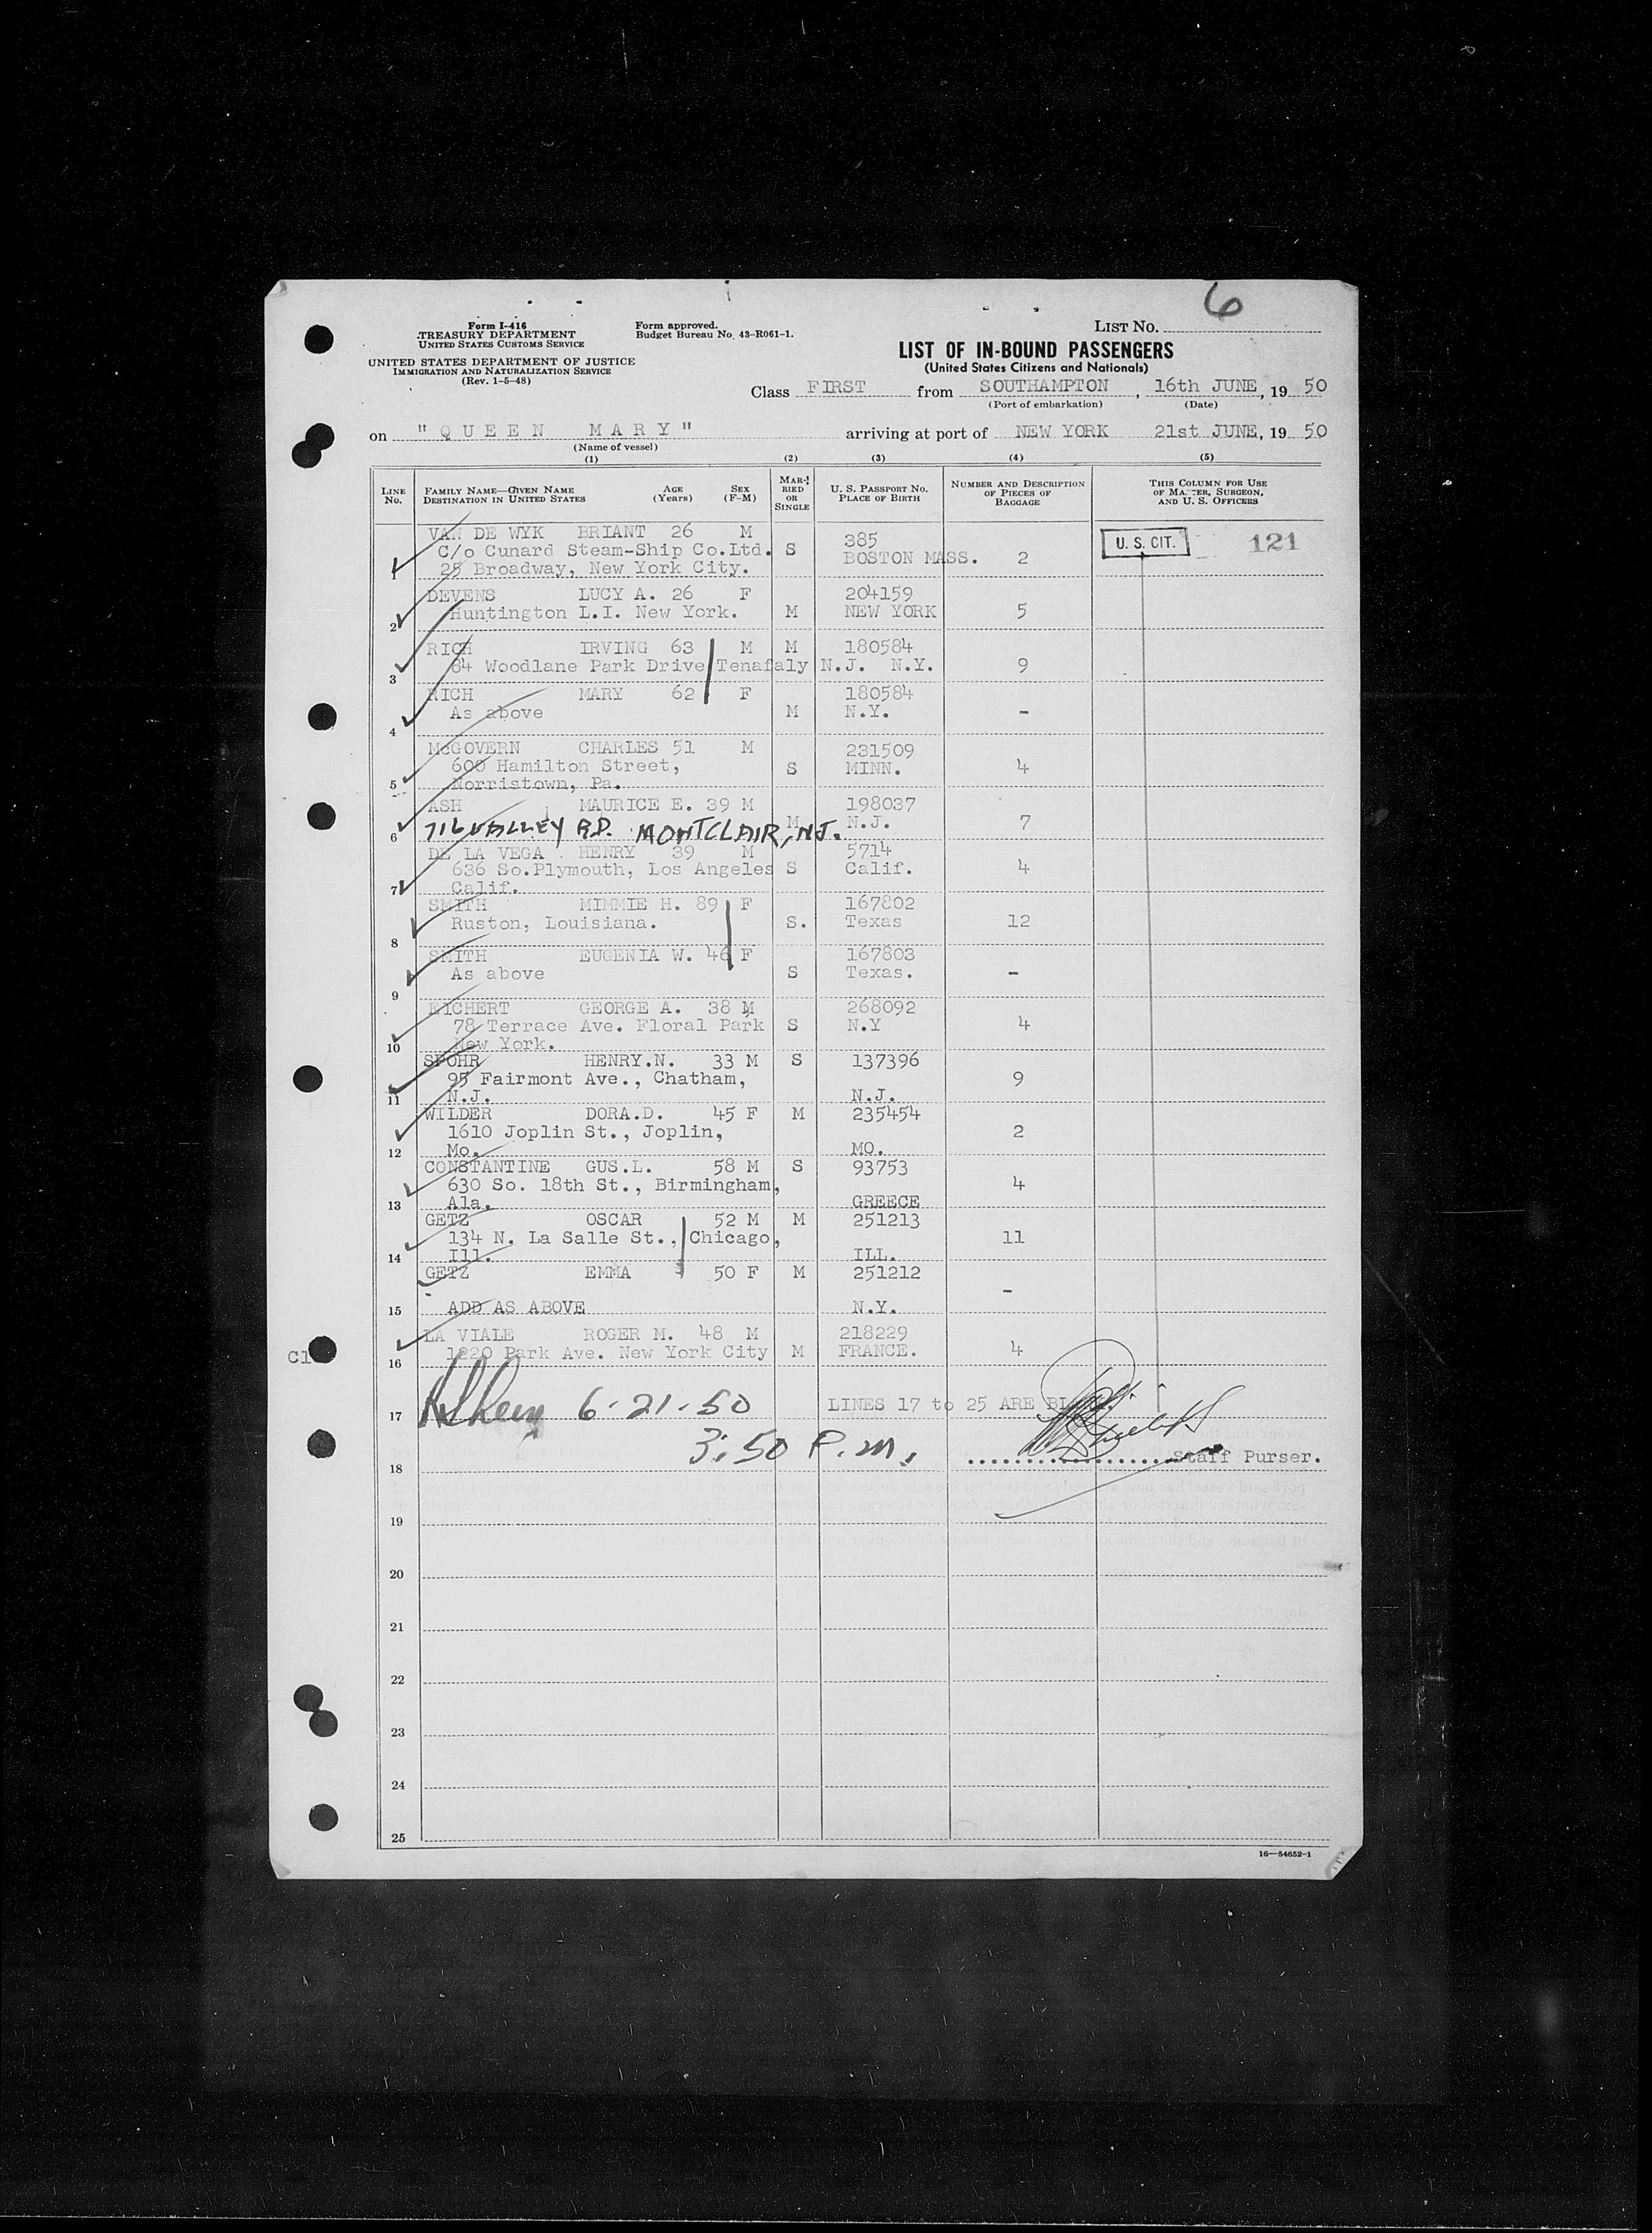 6
Form I-416
TREASURY DEPARTMENT
UNITED STATES CUSTOMS SERVICE
UNITED STATES DEPARTMENT OF JUSTICE
IMMIGRATION AND NATURALIZATION SERVICE
(Rev. 1-5-48)
Form approved.
Budget Bureau No. 43-R061-1.
LIST NO.
LIST OF IN-BOUND PASSENGERS
(United States Citizens and Nationals)
Class FIRST from SOUTHAMPTON, 16th JUNE, 19 50
(Port of embarkation) (Date)
on "QUEEN MARY" arriving at port of NEW YORK 21st JUNE, 19 50
(Name of vessel)
(1) (2) (3) (4) (5)
LINE NO. FAMILY NAME—GIVEN NAME DESTINATION IN UNITED STATES AGE (Years) SEX (F-M) MARRIED OR SINGLE U. S. PASSPORT NO. PLACE OF BIRTH NUMBER AND DESCRIPTION OF PIECES OF BAGGAGE THIS COLUMN FOR USE OF MASTER, SURGEON, AND U. S. OFFICERS
VAN DE WYK BRIANT 26 M 385 U. S. CIT. 121
C/o Cunard Steam-Ship Co.Ltd. S BOSTON MASS. 2
1 25 Broadway, New York City.
DEVENS LUCY A. 26 F 204159
2 Huntington L.I. New York. M NEW YORK 5
RICH IRVING 63 M M 180584
3 84 Woodlane Park Drive Tenafaly N.J. N.Y. 9
RICH MARY 62 F 180584
4 As above M N.Y. -
McGOVERN CHARLES 51 M 231509
600 Hamilton Street, S MINN. 4
5 Norristown, Pa.
ASH MAURICE E. 39 M 198037
6 716 VALLEY RD. MONTCLAIR, NJ. M N.J. 7
DE LA VEGA HENRY 39 M 5714
636 So.Plymouth, Los Angeles S Calif. 4
7 Calif.
SMITH MIMMIE H. 89 F 167802
8 Ruston, Louisiana. S. Texas 12
SMITH EUGENIA W. 46 F 167803
9 As above S Texas. -
EICHERT GEORGE A. 38 M 268092
78 Terrace Ave. Floral Park S N.Y 4
10 New York.
SPOHR HENRY.N. 33 M S 137396
95 Fairmont Ave., Chatham, 9
11 N.J. N.J.
WILDER DORA.D. 45 F M 235454
1610 Joplin St., Joplin, 2
12 Mo. MO.
CONSTANTINE GUS.L. 58 M S 93753
630 So. 18th St., Birmingham, 4
13 Ala. GREECE
GETZ OSCAR 52 M M 251213
134 N. La Salle St., Chicago, 11
14 Ill. ILL.
GETZ EMMA 50 F M 251212
-
15 ADD AS ABOVE N.Y.
LA VIALE ROGER M. 48 M 218229
16 1220 Park Ave. New York City M FRANCE. 4
17 6-21-50 LINES 17 to 25 ARE
3:50 P.M.
18 Staff Purser.
19
20
21
22
23
24
25
16—54652-1